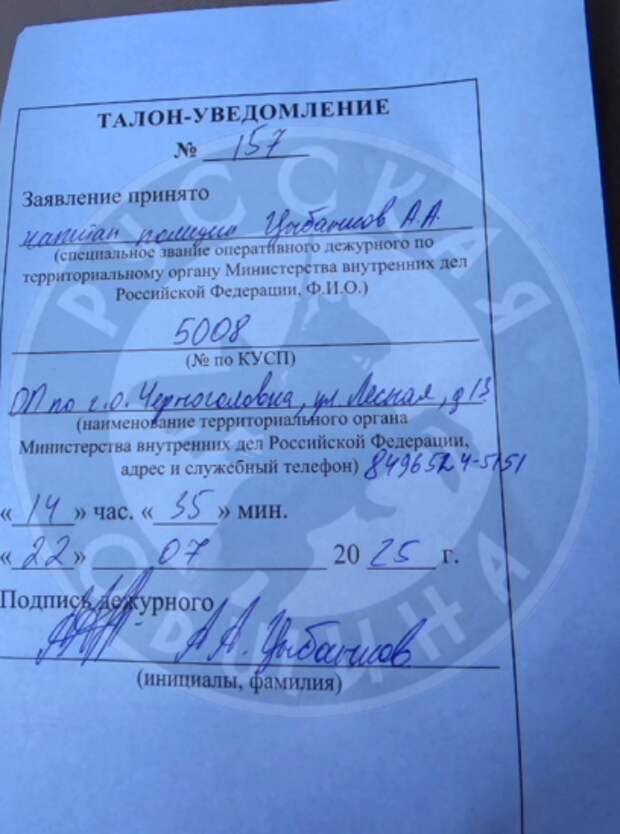 ТАЛОН-УВЕДОМЛЕНИЕ
№ 157
Заявление принято
капитан полиции Цыбанков А.А.
(специальное звание оперативного дежурного по
территориальному органу Министерства внутренних дел
Российской Федерации, Ф.И.О.)
5008
(№ по КУСП)
ОП по г.о. Черноголовка, ул Лесная, д 13
(наименование территориального органа
Министерства внутренних дел Российской Федерации,
адрес и служебный телефон) 8496524-5151
«14» час. «35» мин.
«22» 07 2025 г.
Подпись дежурного
А.А.
(инициалы, фамилия)
РУССКАЯ
ОБЩИНА